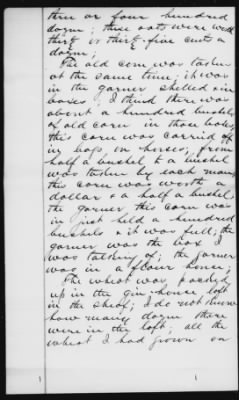 three or four hundred
dozen; these oats were worth
thirty or thirty-five cents a
dozen;
The old corn was taken
at the same time; it was
in the garner shelled & in
boxes; I think there was
about a hundred bushels
of old corn in those boxes;
this corn was carried off
in bags on horses, from
half a bushel to a bushel
was taken by each man;
this corn was worth a
dollar & a half a bushel;
the garner this corn was
in just held a hundred
bushels & it was full; the
garner was the box I
was talking of; the garner
was in a flour house;
The wheat was packed
up in the gin-house loft
in the sheaf; I do not know
how many dozen there
were in the loft; all the
wheat I had grown on